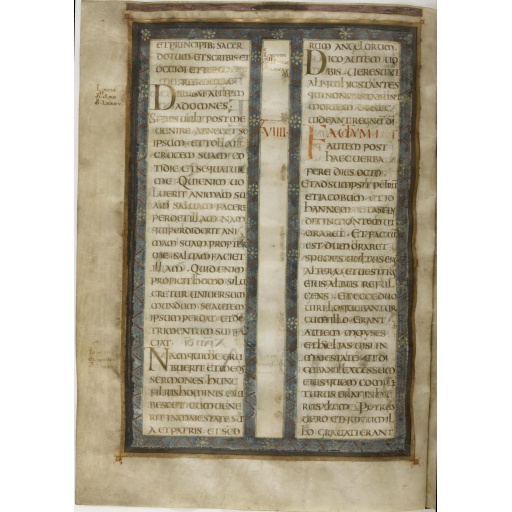 ET PRINCIPIB; SACER
DOTUM ET SCRIBIS ET
OCCIDI ET
DICEBAT AUTEM
AD OMNES;
SI QUIS VULT POST ME
VENIRE ABNEGET SE
IPSUM ET TOLLAT
CRUCEM SUAM COT
TIDIE ET SEQUATUR
ME QUI ENIM UO
LUERIT ANIMAM SU
AM SALUAM FACERE
PERDET ILLAM NAM
QUI PERDIDERIT ANI
MAM SUAM PROPTER
ME SALUAM FACIET
ILLAM QUID ENIM
PROFICIT HOMO SI LU
CRETUR UNIUERSUM
MUNDUM SE AUTEM
IPSUM PERDAT ET DE
TRIMENTUM SUI FA
CIAT
NAM QUI ME ERU
BUERIT ET MEOS
SERMONES HUNC
FILIUS HOMINIS ERU
BESCET CUM UENE
RIT IN MAIESTATE SU
A ET PATRIS ET SCO
VIIII
RUM ANGELORUM
DICO AUTEM UO
BIS UERE SUNT
ALIQUI HIC STANTES
QUI NON GUSTABUNT
MORTEM DONEC
UIDEANT REGNU DI
FACTUM
AUTEM POST
HAEC UERBA
FERE DIES OCTO
ET ADSUMPSIT PETRU
ET IACOBUM ET IO
HANNEM ET ASCEN
DIT IN MONTEM UT
ORARET ET FACTU
EST DUM ORARET
SPECIES UULTUS EI
ALTERA ET UESTITUS
EIUS ALBUS REFUL
GENS ET ECCE DUO
UIRI LOQUEBANTUR
CUM ILLO ERANT
AUTEM MOYSES
ET HELIAS UISI IN
MAIESTATE ET DI
CEBANT EXCESSUM
EIUS QUEM COMPLE
TURUS ERAT IN HIE
RUSALEM PETRUS
UERO ET QUI CUM IL
LO GRAUATI ERANT